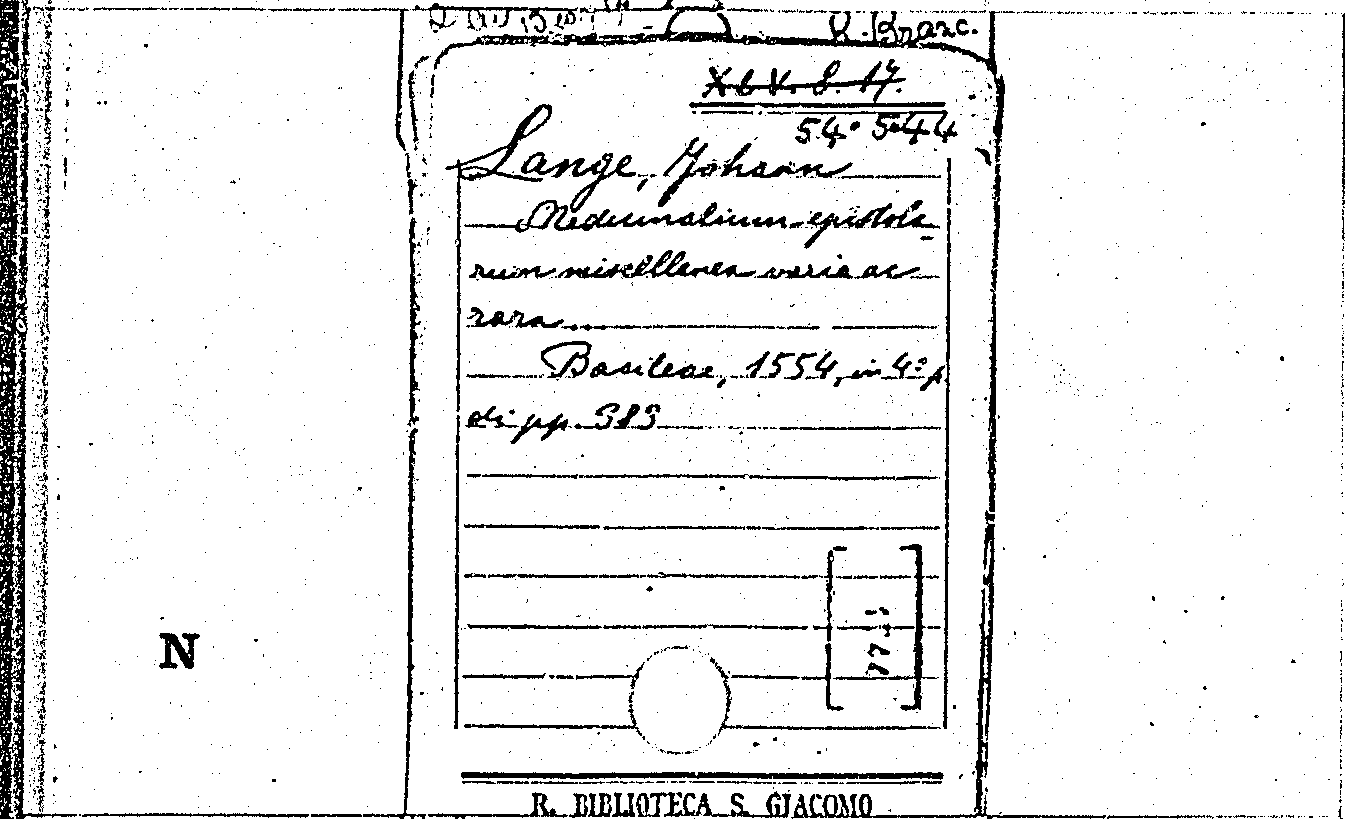 R. Branc.
X L V. S. 17.
54. 5.44
Lange, Johann
Medicinalium epistola-
rum miscellanea varia ac
rara...
Basileae, 1554, in 4º p
di pp. 383
N
R. BIBLIOTECA S. GIACOMO